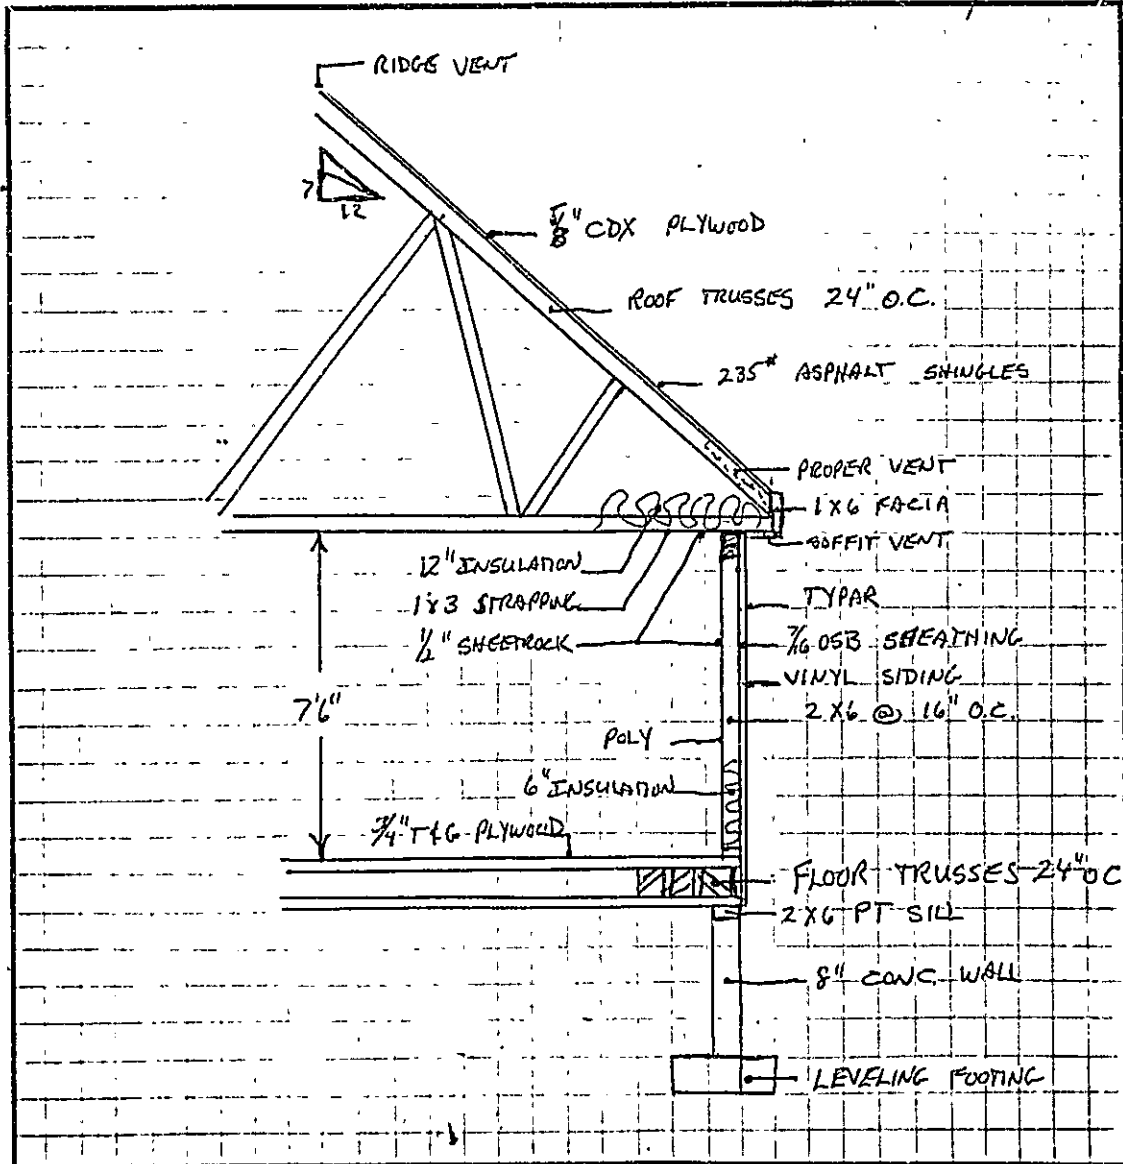 RIDGE VENT
7
12
5/8" CDX PLYWOOD
ROOF TRUSSES 24" O.C.
235# ASPHALT SHINGLES
PROPER VENT
1X6 FACIA
SOFFIT VENT
12" INSULATION
1X3 STRAPPING
1/2" SHEETROCK
TYPAR
7/16 OSB SHEATHING
VINYL SIDING
2X6 @ 16" O.C.
7'6"
POLY
6" INSULATION
3/4" T&G PLYWOOD
FLOOR TRUSSES 24" OC
2X6 PT SILL
8" CONC. WALL
LEVELING FOOTING